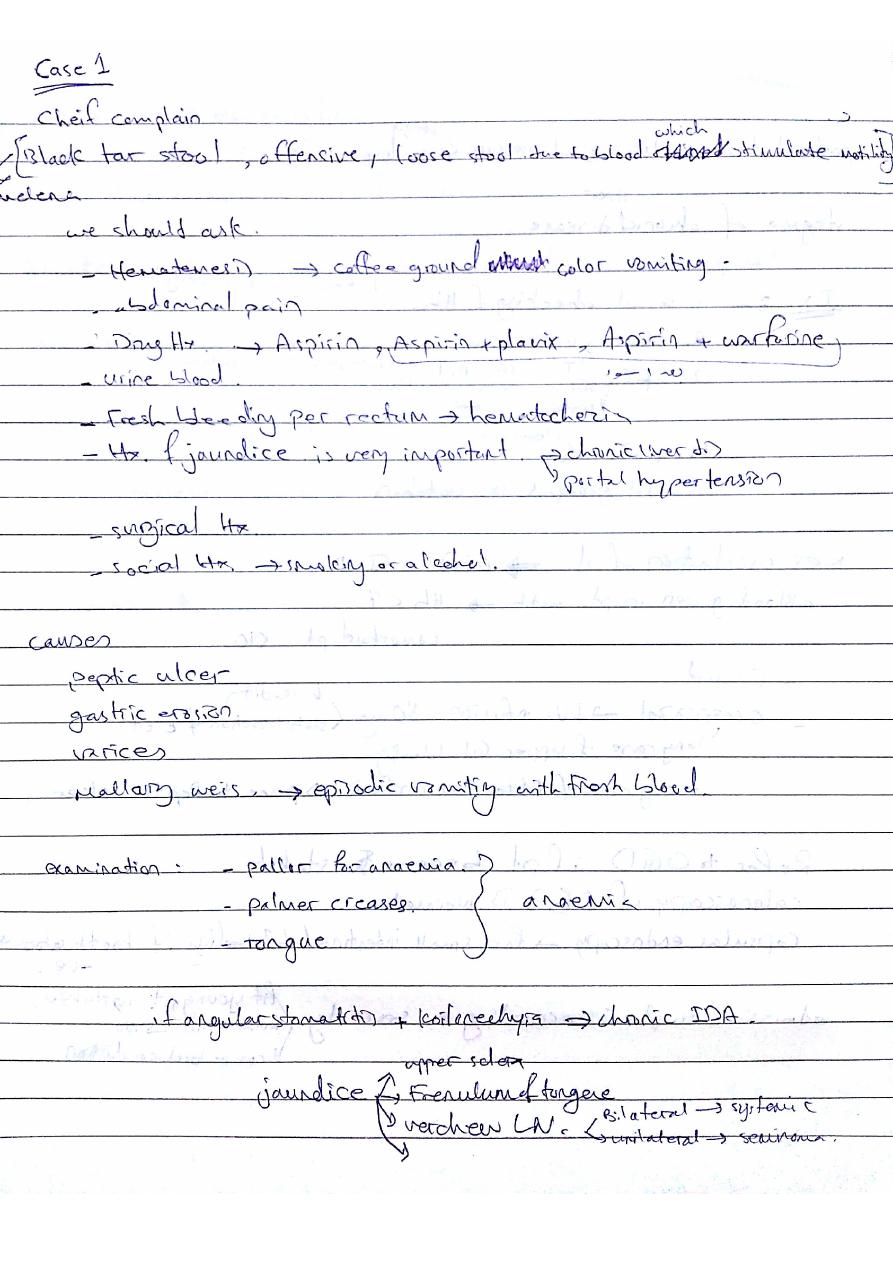 Case 1
Cheif complain
[Black tar stool, offensive, loose stool due to blood which stimulate motility]
melena
we should ask.
- Hematemesis → coffee ground color vomiting.
- abdominal pain
- Drug Hx → Aspirin, Aspirin + plavix, Aspirin + warfarine
- urine blood.
- Fresh bleeding per rectum → hematochezia
- Hx. of jaundice is very important. → chronic liver dis
→ portal hypertension
- surgical Hx
- social Hx. → smoking or alcohol.
causes
peptic ulcer
gastric erosion.
varices
Mallary weis. → episodic vomiting with fresh blood.
examination : - paller for anaemia.
- palmer creases. } anaemia
- tongue
if angular stomatitis + koilonechyia ⇒ chronic IDA.
upper sclera
jaundice Frenulum of tongere
verchew LN. Bilateral → systemic
unilateral → seminoma.